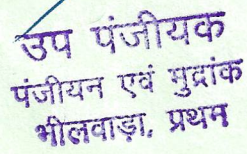 उप पंजीयक
पंजीयन एवं मुद्रांक
भीलवाड़ा, प्रथम